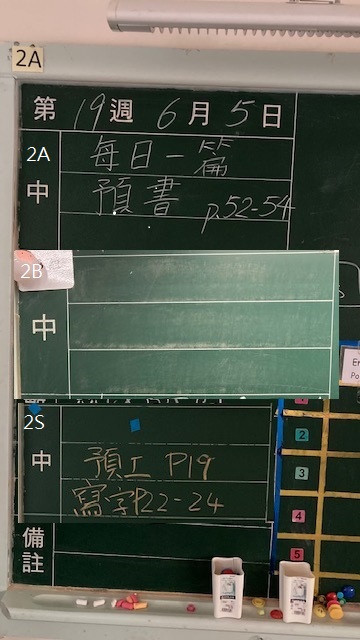 2A
第 19 週 6 月 5 日
2A
每日一篇
中
預書 p.52-54
2B
中
2S
預工 P19
中
寫字P22-24
備註
2
3
4
5